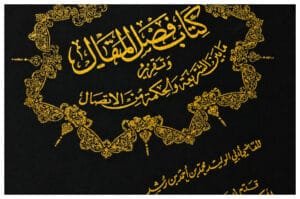 كتاب فصل المقال
وتقرير
ما بين الشريعة والحكمة من الاتصال
للقاضي أبي الوليد محمد بن أحمد بن رشد